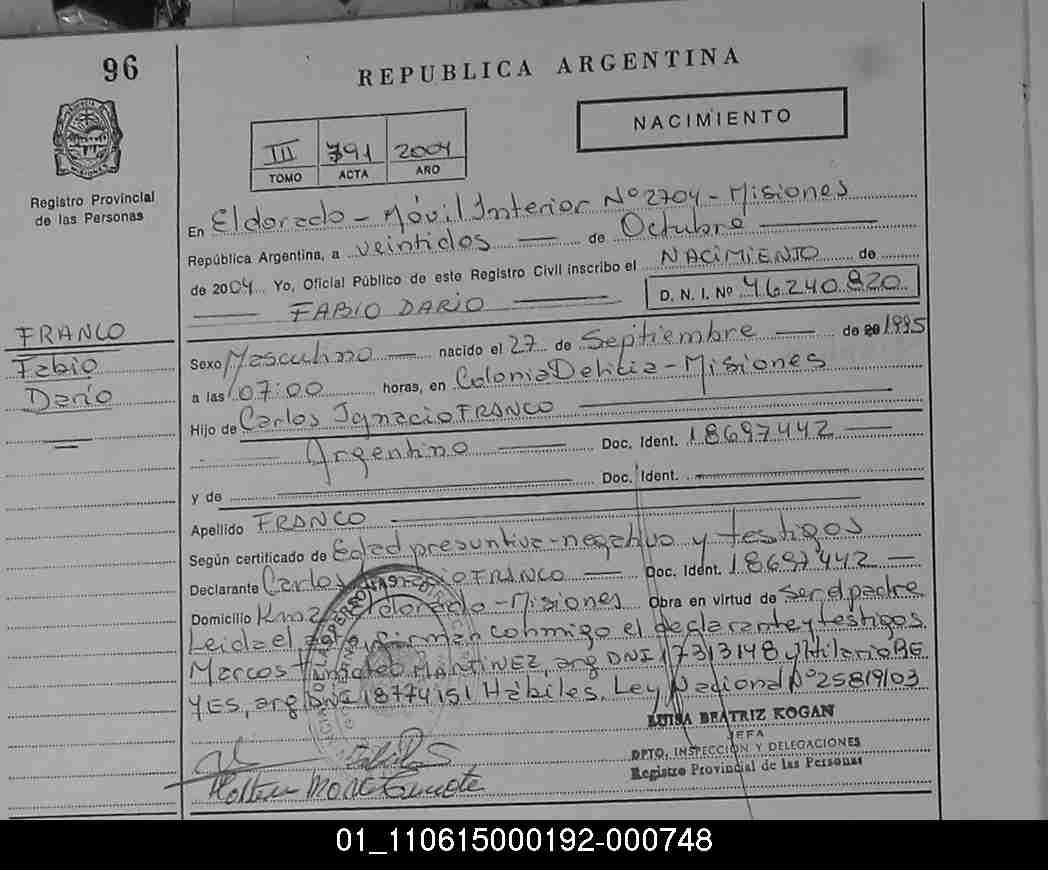 96
REPUBLICA ARGENTINA
NACIMIENTO
III 791 2004
TOMO ACTA AÑO
Registro Provincial
de las Personas
En Eldorado - Móvil Interior Nº 2704 - Misiones
República Argentina, a veintidos — de Octubre —
de 2004 Yo, Oficial Público de este Registro Civil inscribo el NACIMIENTO de
— FABIO DARIO — D. N. I. Nº 46240820
FRANCO
Fabio
Darío
Sexo Masculino — nacido el 27 de Septiembre — de 1995
a las 07:00 horas, en Colonia Delicia - Misiones
Hijo de Carlos Ignacio FRANCO —
Argentino — Doc. Ident. 18697442 —
y de — Doc. Ident. —
Apellido FRANCO —
Según certificado de Edad presuntiva - negativo y testigos
Declarante Carlos Ignacio FRANCO — Doc. Ident. 18697442 —
Domicilio Eldorado - Misiones Obra en virtud de ser el padre
Leida el acta, firman conmigo el declarante y testigos
Marcos MARTINEZ, arg DNI 17313148 y Hilario RE
YES, arg DNI 18774151 Hábiles, Ley Nacional Nº 25819/03
LUISA BEATRIZ KOGAN
JEFA
DPTO. INSPECCIÓN Y DELEGACIONES
Registro Provincial de las Personas
01_110615000192-000748